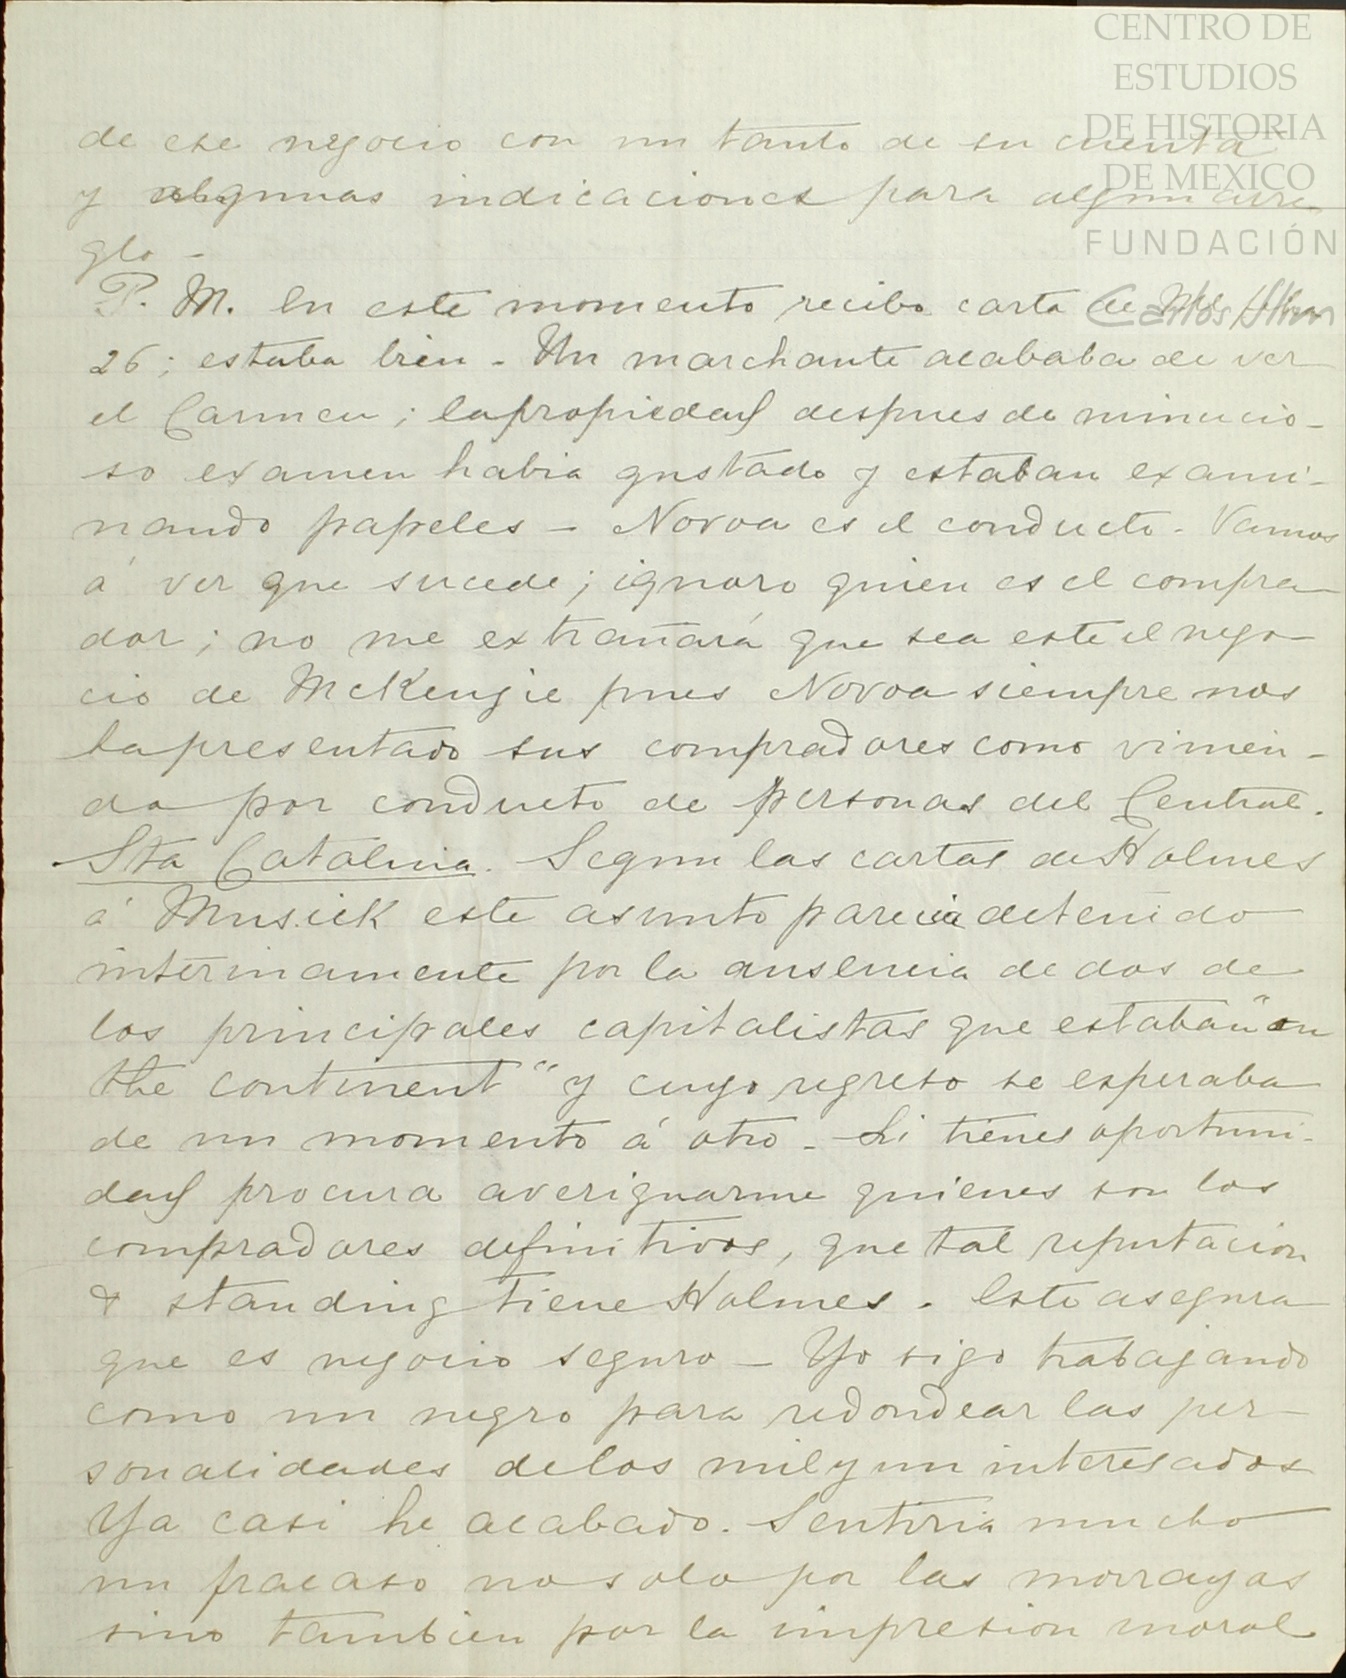 CENTRO DE
ESTUDIOS
DE HISTORIA
DE MEXICO
FUNDACIÓN
Carlos Slim
de ese negocio con un tanto de su cuenta
y algunas indicaciones para algun arre
glo -
P. M. En este momento recibo carta de
26; estaba bien - Un marchante acababa de ver
el Carmen; la propiedad despues de minucio-
so examen habia gustado y estaban exami-
nando papeles - Novoa es el conducto - Vamos
á ver que sucede; ignoro quien es el compra-
dor; no me extrañará que sea este el nego-
cio de McKenzie pues Novoa siempre nos
ha presentado sus compradores como vinien-
do por conducto de personas del Central.
Sta Catalina. Segun las cartas de Holmes
á Musick este asunto parecia detenido
interinamente por la ausencia de dos de
los principales capitalistas que estaban "on
the continent" y cuyo regreso se esperaba
de un momento á otro - Si tienes oportuni-
dad procura averiguarme quienes son los
compradores definitivos, que tal reputacion
& standing tiene Holmes. Este asegura
que es negocio seguro - Yo sigo trabajando
como un negro para redondear las per-
sonalidades de los mil y un interesados
Ya casi he acabado. Sentiria mucho
un fracaso no solo por las morrayas
sino tambien por la impresion moral